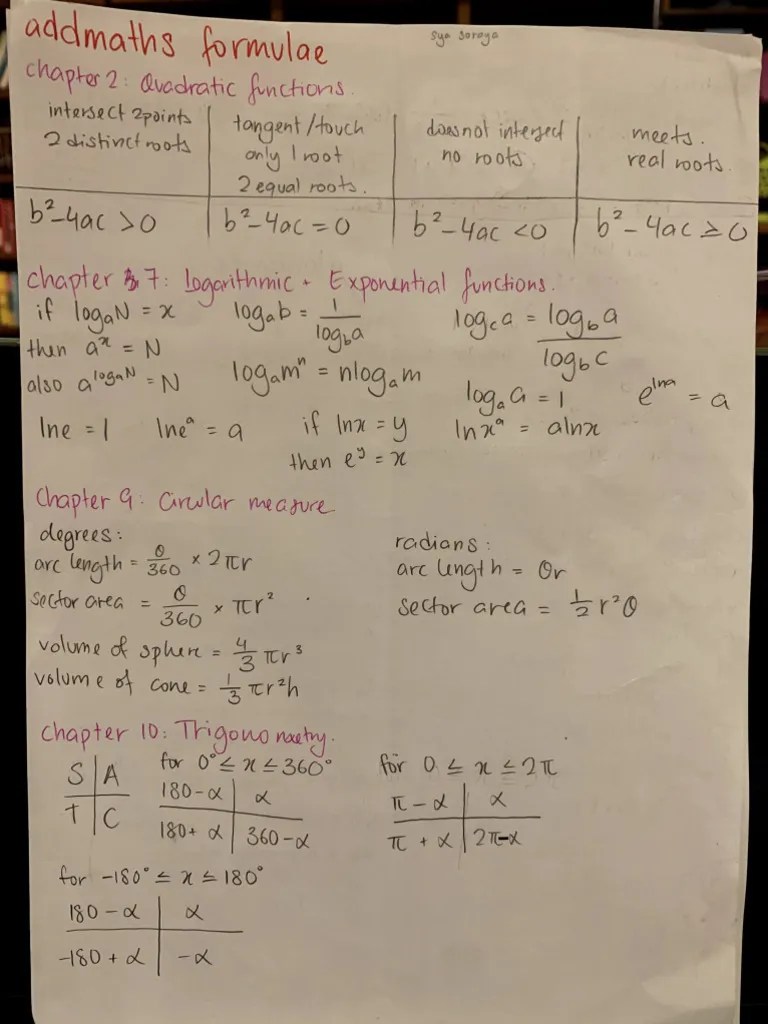 addmaths formulae
sya soraya
chapter 2: Quadratic functions.
intersect 2 points
2 distinct roots
tangent/touch
only 1 root
2 equal roots.
does not intersect
no roots.
meets.
real roots.
b²-4ac > 0
b²-4ac = 0
b²-4ac < 0
b²-4ac ≥ 0
chapter 7: Logarithmic + Exponential functions.
if logₐN = x
then aˣ = N
also a^(logₐN) = N
logₐb = 1/log_b a
logₐmⁿ = nlogₐm
log_c a = log_b a / log_b c
logₐa = 1
e^(lna) = a
lne = 1
lneᵃ = a
if lnx = y
then eʸ = x
lnxᵃ = alnx
Chapter 9: Circular measure
degrees:
arc length = θ/360 × 2πr
sector area = θ/360 × πr²
volume of sphere = 4/3 πr³
volume of cone = 1/3 πr²h
radians:
arc length = θr
sector area = 1/2 r²θ
Chapter 10: Trigonometry.
S | A
T | C
for 0° ≤ x ≤ 360°
180-α | α
180+α | 360-α
for 0 ≤ x ≤ 2π
π-α | α
π+α | 2π-α
for -180° ≤ x ≤ 180°
180-α | α
-180+α | -α